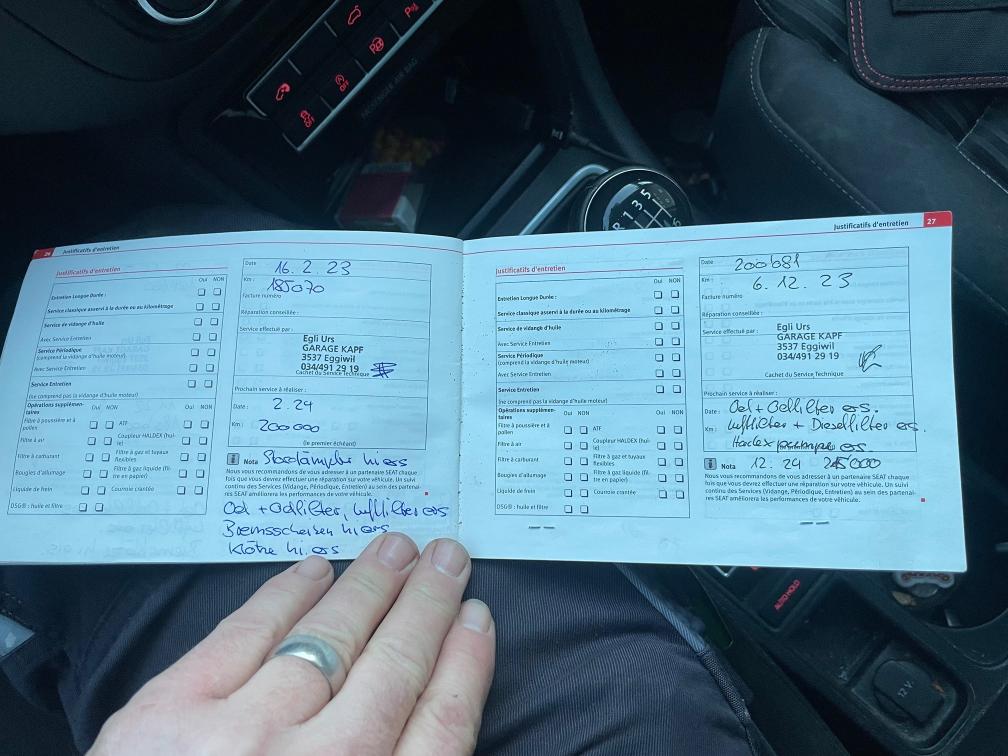 OFF
OFF
PASSENGER AIR BAG
R 1 3 5
6
26 Justificatifs d'entretien
Justificatifs d'entretien
Oui NON
Entretien Longue Durée :
Service classique asservi à la durée ou au kilométrage
Service de vidange d'huile
Avec Service Entretien
Service Périodique
(comprend la vidange d'huile moteur)
Avec Service Entretien
Service Entretien
(ne comprend pas la vidange d'huile moteur)
Opérations supplémen-
taires
Oui NON
Oui NON
Filtre à poussière et à
pollen
ATF
Filtre à air
Coupleur HALDEX (hui-
le)
Filtre à carburant
Filtre à gaz et tuyaux
flexibles
Bougies d'allumage
Filtre à gaz liquide (fil-
tre en papier)
Liquide de frein
Courroie crantée
DSG® : huile et filtre
Date : 16. 2. 23
Km : 185070
Facture numéro
Réparation conseillée :
Service effectué par :
Egli Urs
GARAGE KAPF
3537 Eggiwil
034/491 29 19
Cachet du Service Technique
Prochain service à réaliser :
Date : 2. 24
Km : 200000
(le premier échéant)
Nota Stossdämpfer hi ers
Nous vous recommandons de vous adresser à un partenaire SEAT chaque
fois que vous devrez effectuer une réparation sur votre véhicule. Un suivi
continu des Services (Vidange, Périodique, Entretien) au sein des partenai-
res SEAT améliorera les performances de votre véhicule.
Oel + Oelfilter, Luftfilter ers
Bremsscheiben hi ers
Klötze hi. ers
Justificatifs d'entretien 27
Justificatifs d'entretien
Oui NON
Entretien Longue Durée :
Service classique asservi à la durée ou au kilométrage
Service de vidange d'huile
Avec Service Entretien
Service Périodique
(comprend la vidange d'huile moteur)
Avec Service Entretien
Service Entretien
(ne comprend pas la vidange d'huile moteur)
Opérations supplémen-
taires
Oui NON
Oui NON
Filtre à poussière et à
pollen
ATF
Filtre à air
Coupleur HALDEX (hui-
le)
Filtre à carburant
Filtre à gaz et tuyaux
flexibles
Bougies d'allumage
Filtre à gaz liquide (fil-
tre en papier)
Liquide de frein
Courroie crantée
DSG® : huile et filtre
Date : 200681
Km : 6. 12. 23
Facture numéro
Réparation conseillée :
Service effectué par :
Egli Urs
GARAGE KAPF
3537 Eggiwil
034/491 29 19
Cachet du Service Technique
Prochain service à réaliser :
Date : Oel + Oelfilter ers.
Km : Luftfilter + Dieselfilter ers.
Haldex ers
Nota 12. 24 215000
Nous vous recommandons de vous adresser à un partenaire SEAT chaque
fois que vous devrez effectuer une réparation sur votre véhicule. Un suivi
continu des Services (Vidange, Périodique, Entretien) au sein des partenai-
res SEAT améliorera les performances de votre véhicule.
AUTO HOLD
12V